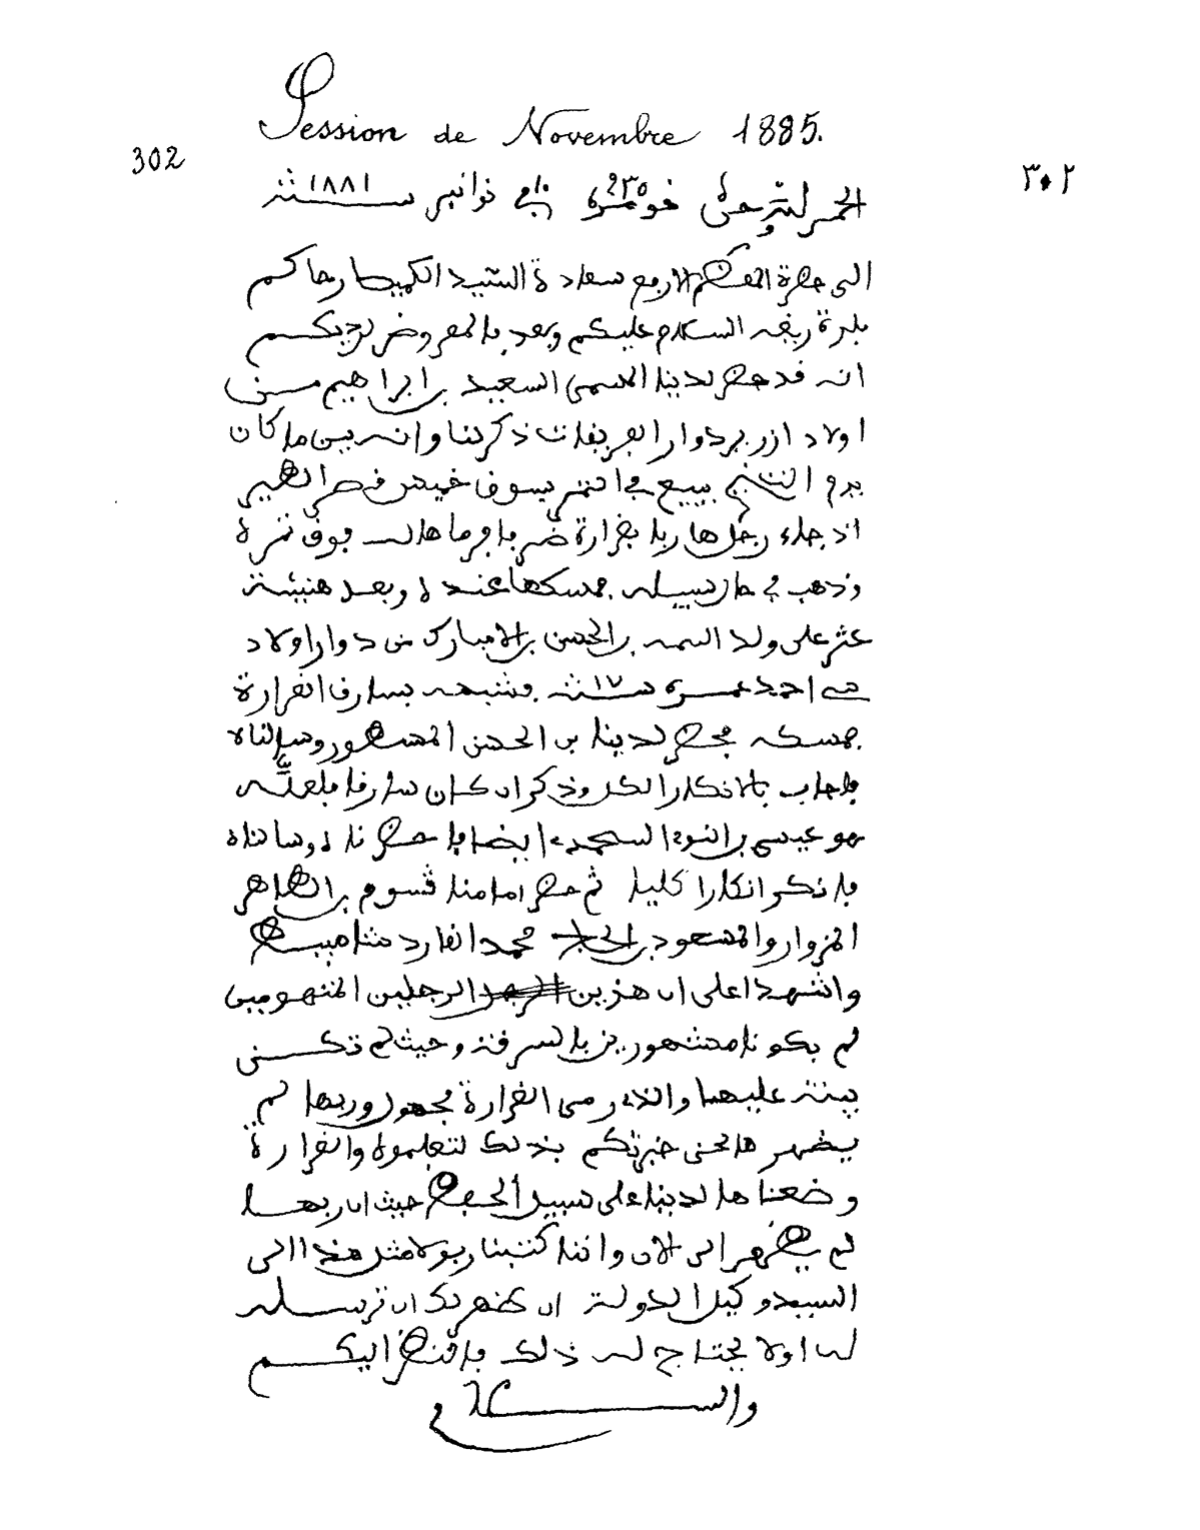 Session de Novembre 1885.
302
٣٠٢
الحمد لله وحده نومره ٢٣٥ في ١٠ نوانبر سنة ١٨٨١
الى حضرة المعظم الارفع سعادة السيد الكميصار حاكم
بلدة السلام عليكم وبعد فالمعروض لديكم
انه قد حضر لدينا المسمى السعيد بن ابراهيم من
اولاد بدوار ذكر لنا وانه بينما كان
يبيع في التمر بسوف
اذ جاء رجل هاربا بغرارة فرماها له فوق تمره
وذهب في حال سبيله فمسكها عنده وبعد هنيئة
عثر على ولد اسمه بن الحسن بن الامبارك من دوار اولاد
احمد عمره ١٧ سنة بسارق الغرارة
فمسكه فحضر لدينا بن الحسن المسطور وسالناه
فاجاب بالانكار الكل وذكر ان كان سارقا فلعله
هو عيسى بن ايضا فاحضرناه وسالناه
فانكر انكارا كليا ثم حضر امامنا قسوم بن الطاهر
المزوار والمسعود بن الحاج محمد
واشهدا على ان هذين الرجلين المتهومين
لم يكونا مشهورين بالسرقة وحيث لم تكن
بينة عليهما والذي رمى الغرارة مجهول وربها لم
يضهر ها نحن خبرتكم بذلك لتعلموه والغرارة
وضعناها لدينا على سبيل الحفظ حيث ان ربها
لم يظهر الى الان واننا كتبنا ربولا مثل هذا الى
السيد وكيل الدولة ان ظهر لك ان ترسله
له اولا يحتاج له ذلك اليكم
والسلام